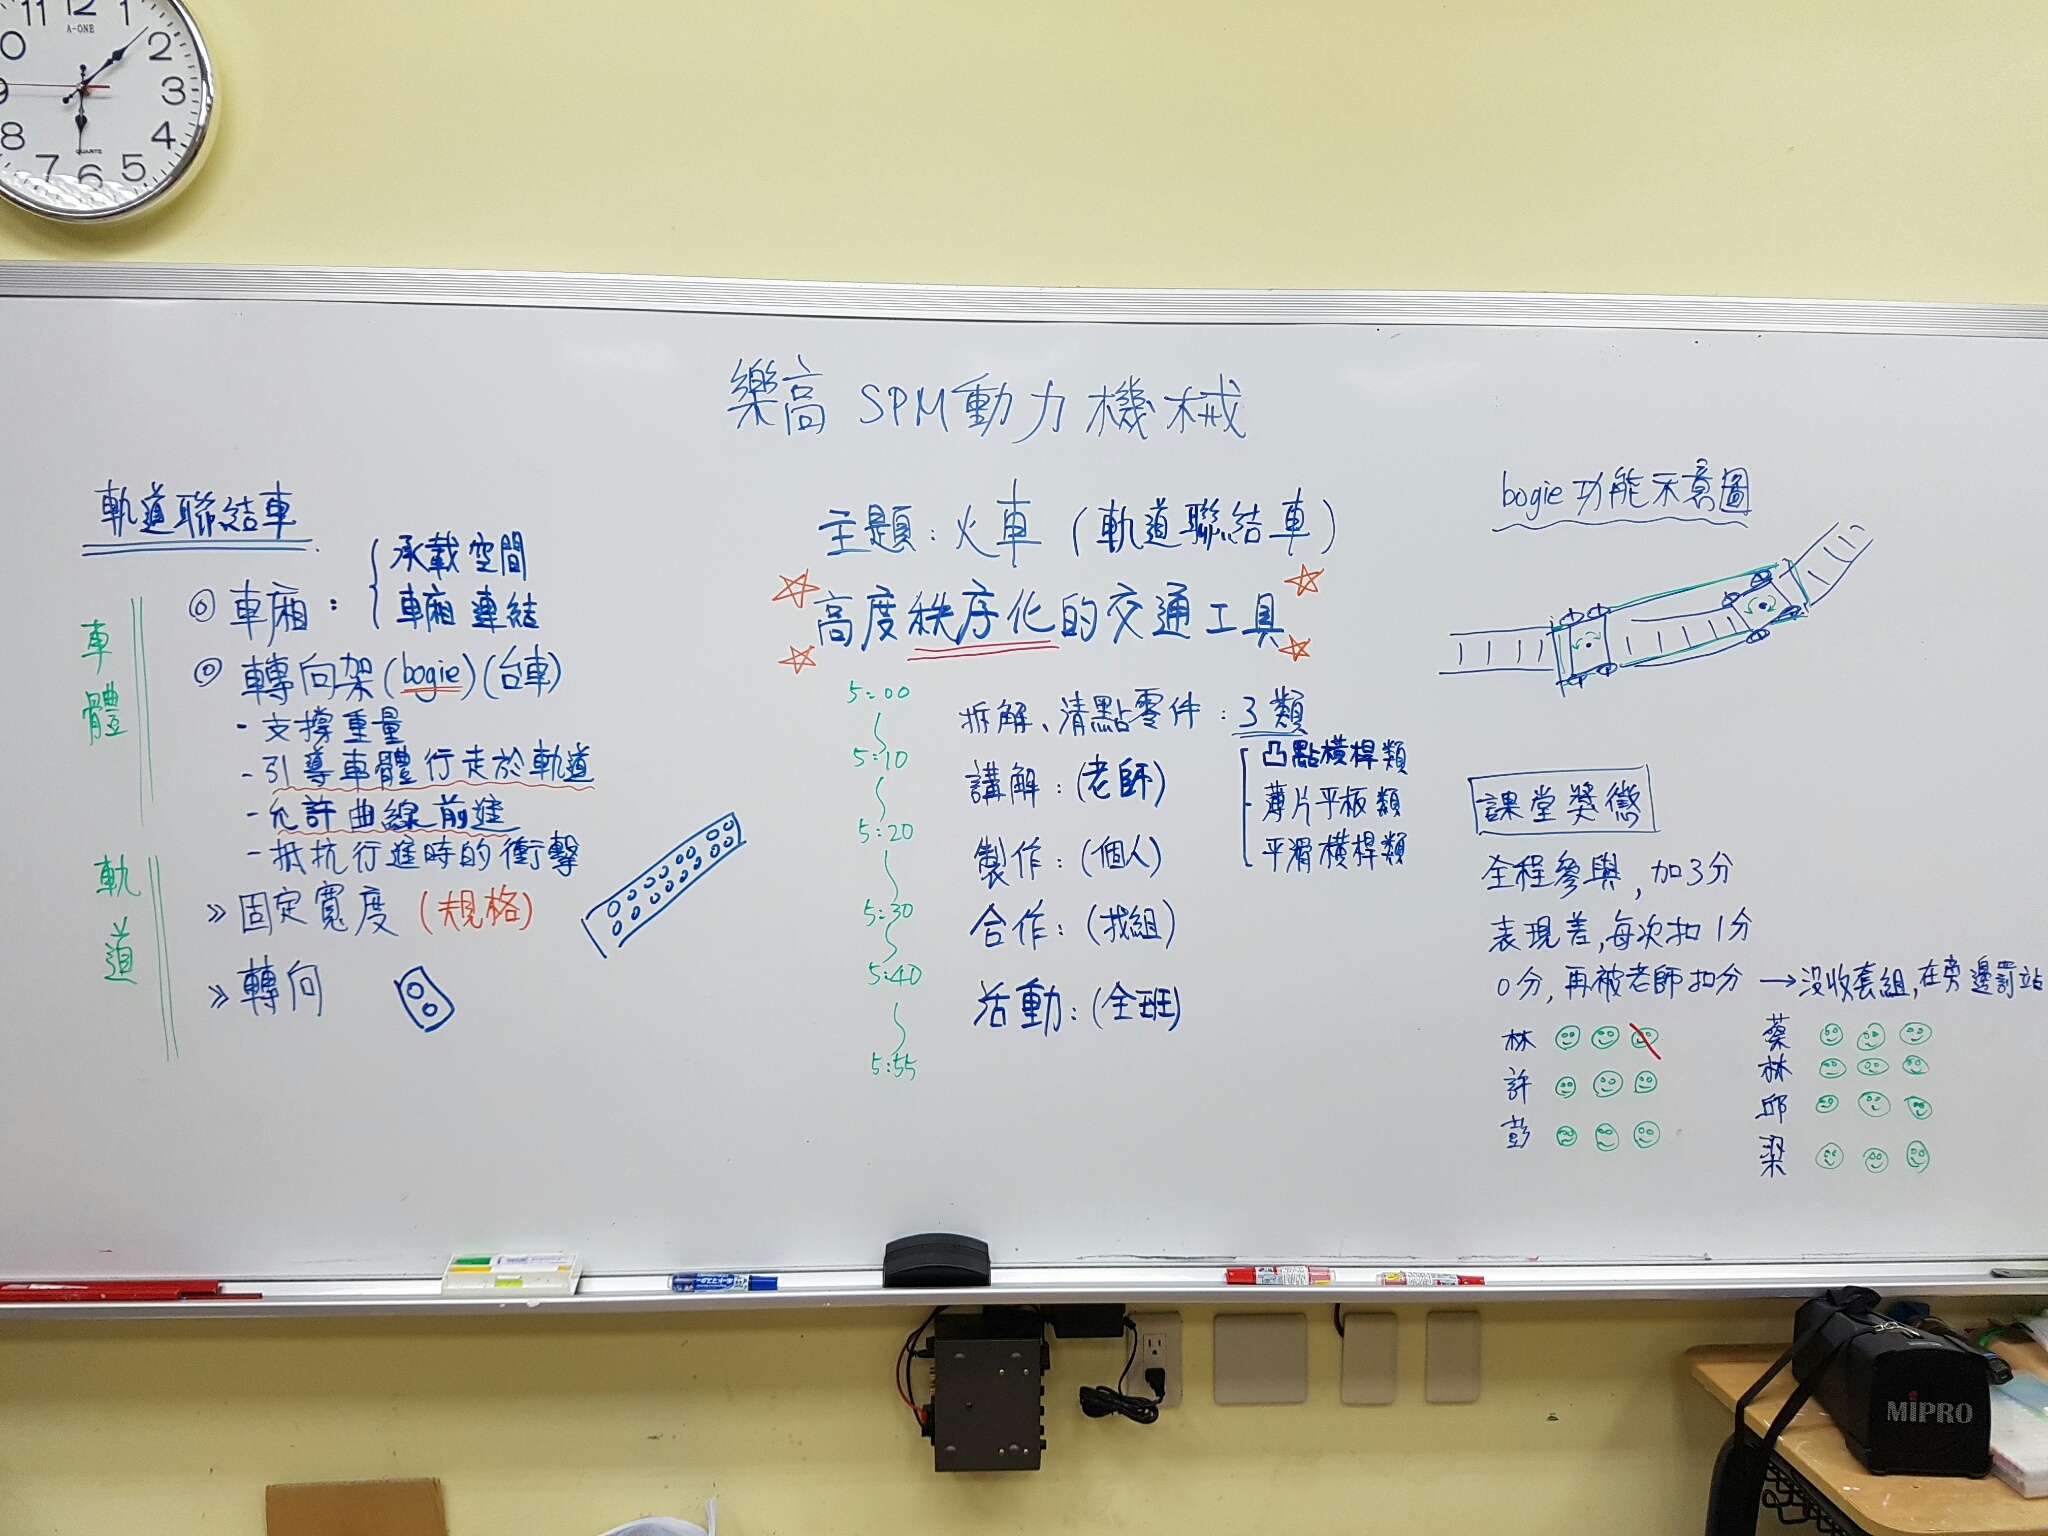 11 12 1
10 2
9 3
8 4
7 6 5
A-ONE
QUARTZ
樂高 SPM動力機械
軌道聯結車
車體
◎ 車廂：
承載空間
車廂連結
◎ 轉向架(bogie)(台車)
- 支撐重量
- 引導車體行走於軌道
- 允許曲線前進
- 抵抗行進時的衝擊
軌道
» 固定寬度 (規格)
» 轉向
主題：火車 (軌道聯結車)
高度秩序化的交通工具
5:00
5:10
5:20
5:30
5:40
5:55
拆解、清點零件：3類
凸點橫桿類
薄片平板類
平滑橫桿類
講解：(老師)
製作：(個人)
合作：(找組)
活動：(全班)
bogie功能示意圖
課堂獎懲
全程參與，加3分
表現差，每次扣1分
0分，再被老師扣分 → 沒收套組，在旁邊罰站
林
許
彭
蔡
林
邱
梁
MIPRO